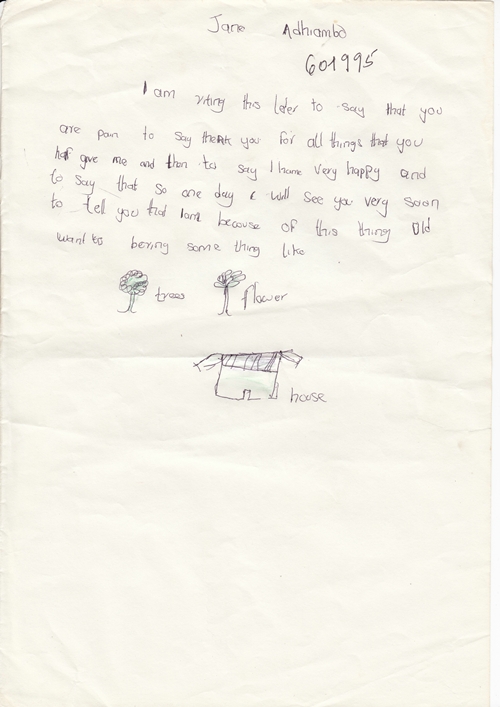 Jane Adhiambo
601995
I am riting this later to say that you
are pan to say thenk you for all things that you
haf gave me and than to say I hame very happy and
to say that so one day I will see you very soon
to tell you that I am because of this thing Old
want to bering some thing like
trees flower
house